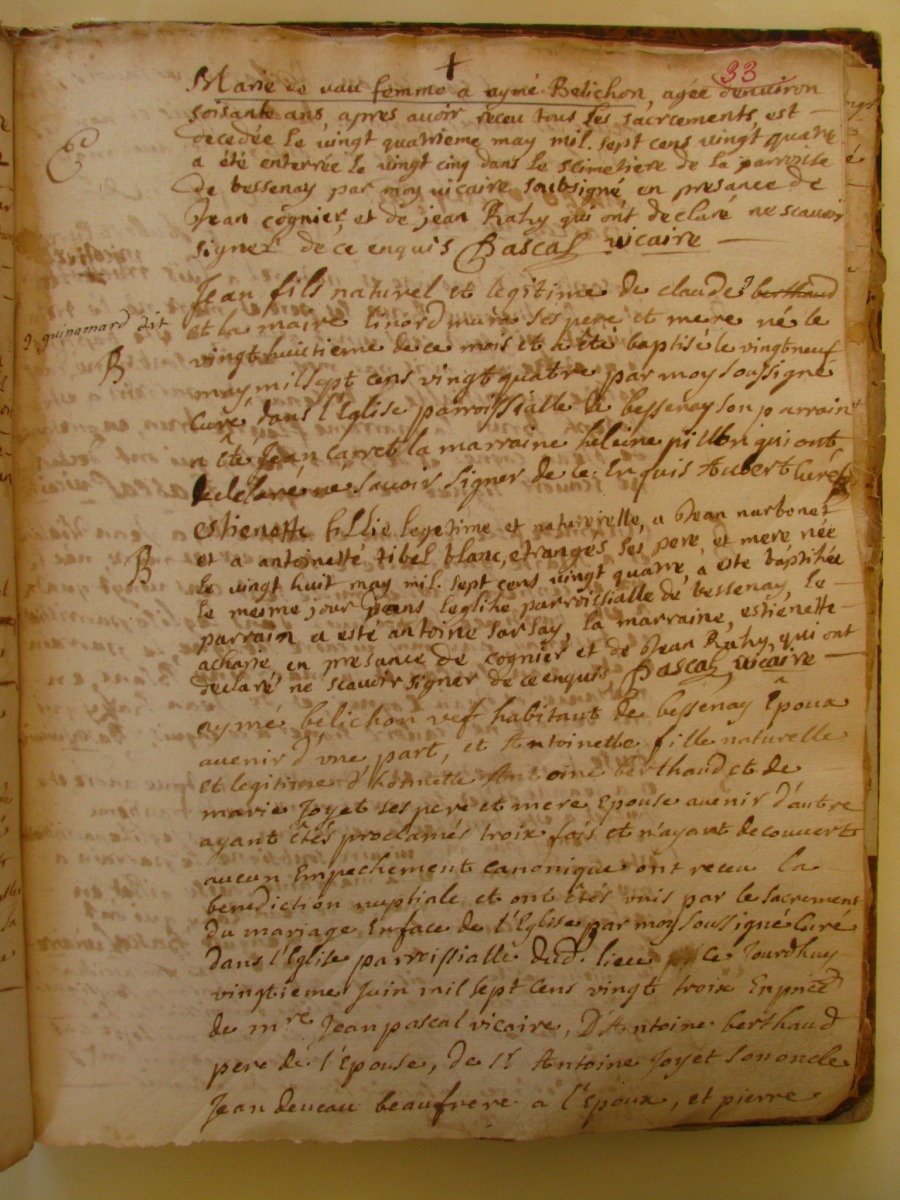 33
Marie de vau femme a aymé Belichon, agée denuiron
soisante ans, apres auoir receu tous les sacrements, est
decedée le vingt quatrieme may mil. sept cens vingt quatre
E
a été enterrée le vingt cinq dans le scimetiere de la parroisse
de bessenay par moy vicaire soubsigné en presance de
Jean cognier, et de jean Rahy qui ont declaré ne scauoir
signer de ce enquis Pascal vicaire
Jean fils naturel et legitime de claude berthaud
guinamard dit
et la maire linord mure ses pere et mere né le
B
vingt huitieme de ce mois et a été baptisé le vingtneuf
may, mil sept cens vingt quatre par moy soussigné
Curé dans l'Eglise parroissialle de bessenay son parrain
a été Jean Carret la marraine heleine pillon qui ont
declaré ne savoir signer de ce Enquis Aubert Curé
Estienette fillie legetime et naturerelle, a Jean narbonet
et a antoinette tibel blanc, etrangés ses pere, et mere née
B
le vingt huit may mil. sept cens vingt quatre a este baptisée
le mesme jour dans leglise parroissialle de bessenay, le
parrain a esté antoine sarsay, la marraine, estienette
acharie en presance de cognier et de Jean Rahy, qui ont
declaré ne scauoir signer de ce enquis Pascal vicaire
aymé belichon vef habitant de bessenay Epoux
auenir d'vne part, et Antoinette fille naturelle
et legitime d' Antoine berthaud et de
marie Joyet ses pere et mere Epouse auenir d'autre
ayant êtés proclamés troix fois et n'ayant decouuert
aucun Empechement canonique ont receu la
benediction nuptiale et ont êtés vnis par le sacrement
du mariage Enface de l'Eglise par moy soussigné Curé
dans l'Eglise parroissialle dud. lieu ce Jourdhuy
vingtieme Juin mil sept cens vingt troix En pñce
de mre Jean pascal vicaire, D'Antoine berthaud
pere de l'Epouse, de sr Antoine Joyet son oncle
Jean deueau beaufrere a l'Epoux, et pierre